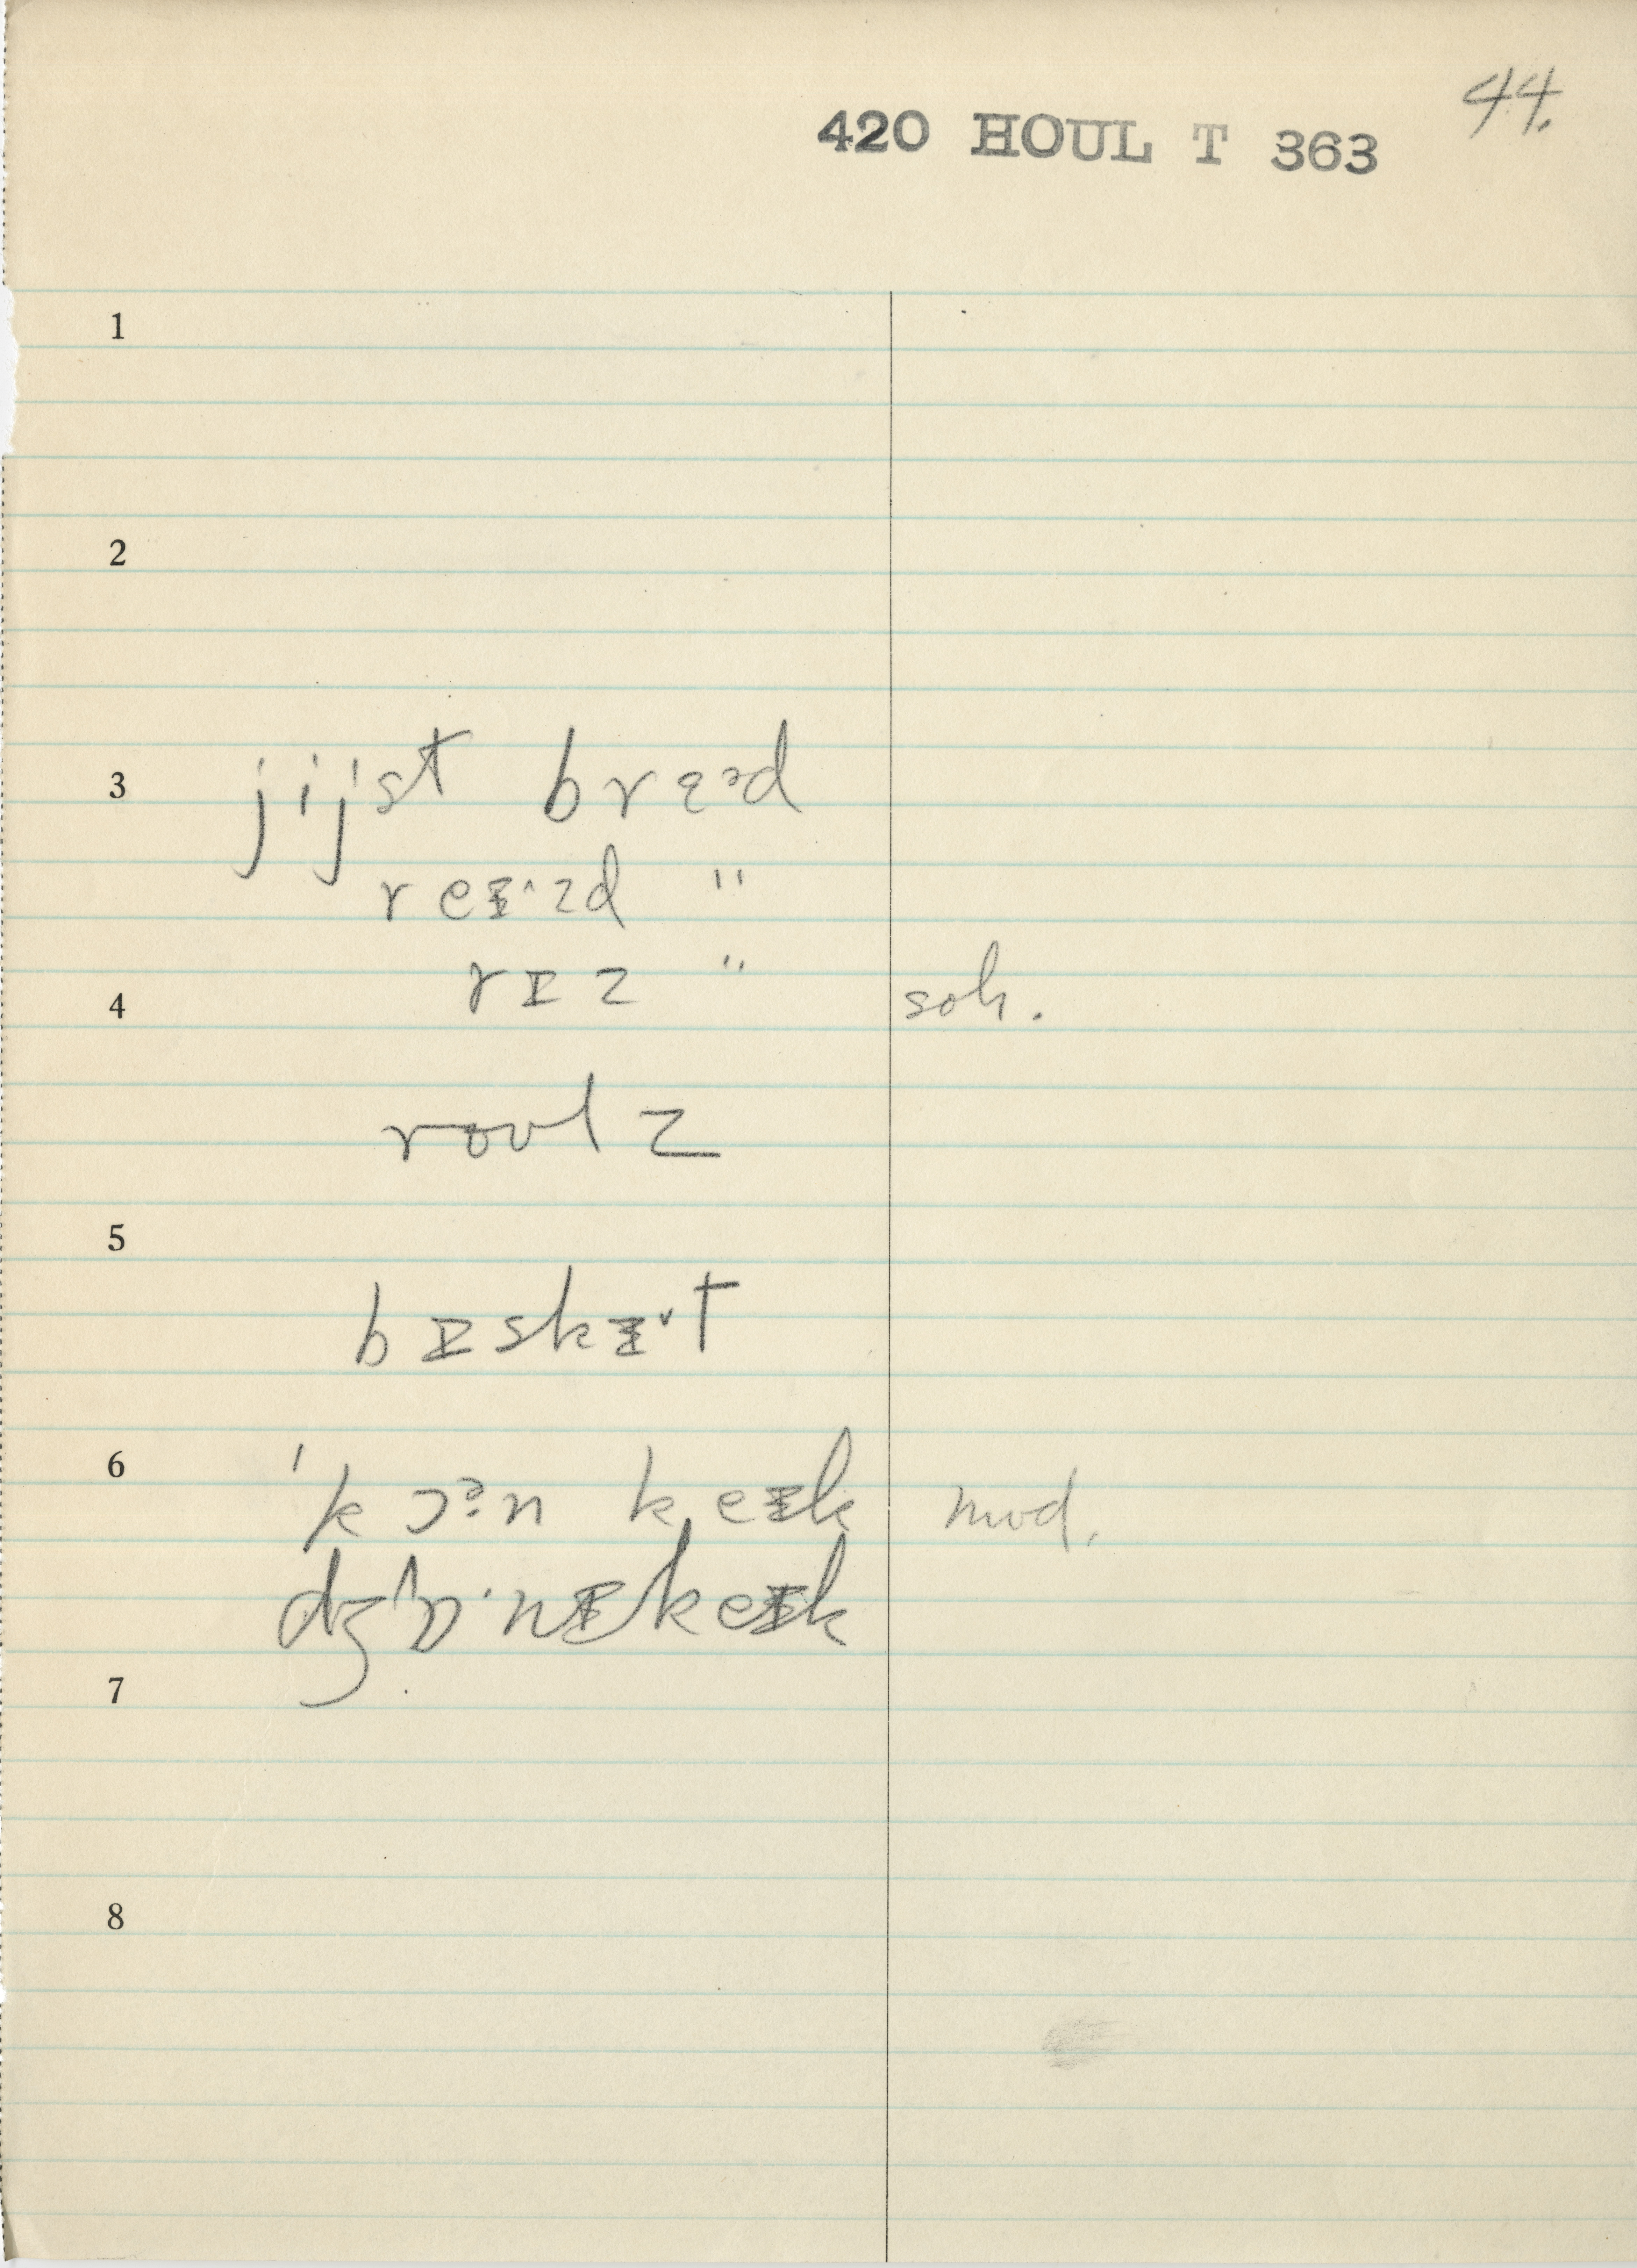 44.
420 HOUL T 363
1
2
3 jijst brɛᵊd
reɪˑzd "
4 rɪz " soh.
roʊlz
5
bɪskɪˇt
6 'kɔᵊːn keɪk mod.
dʒɒˑnɪkeɪk
7
8